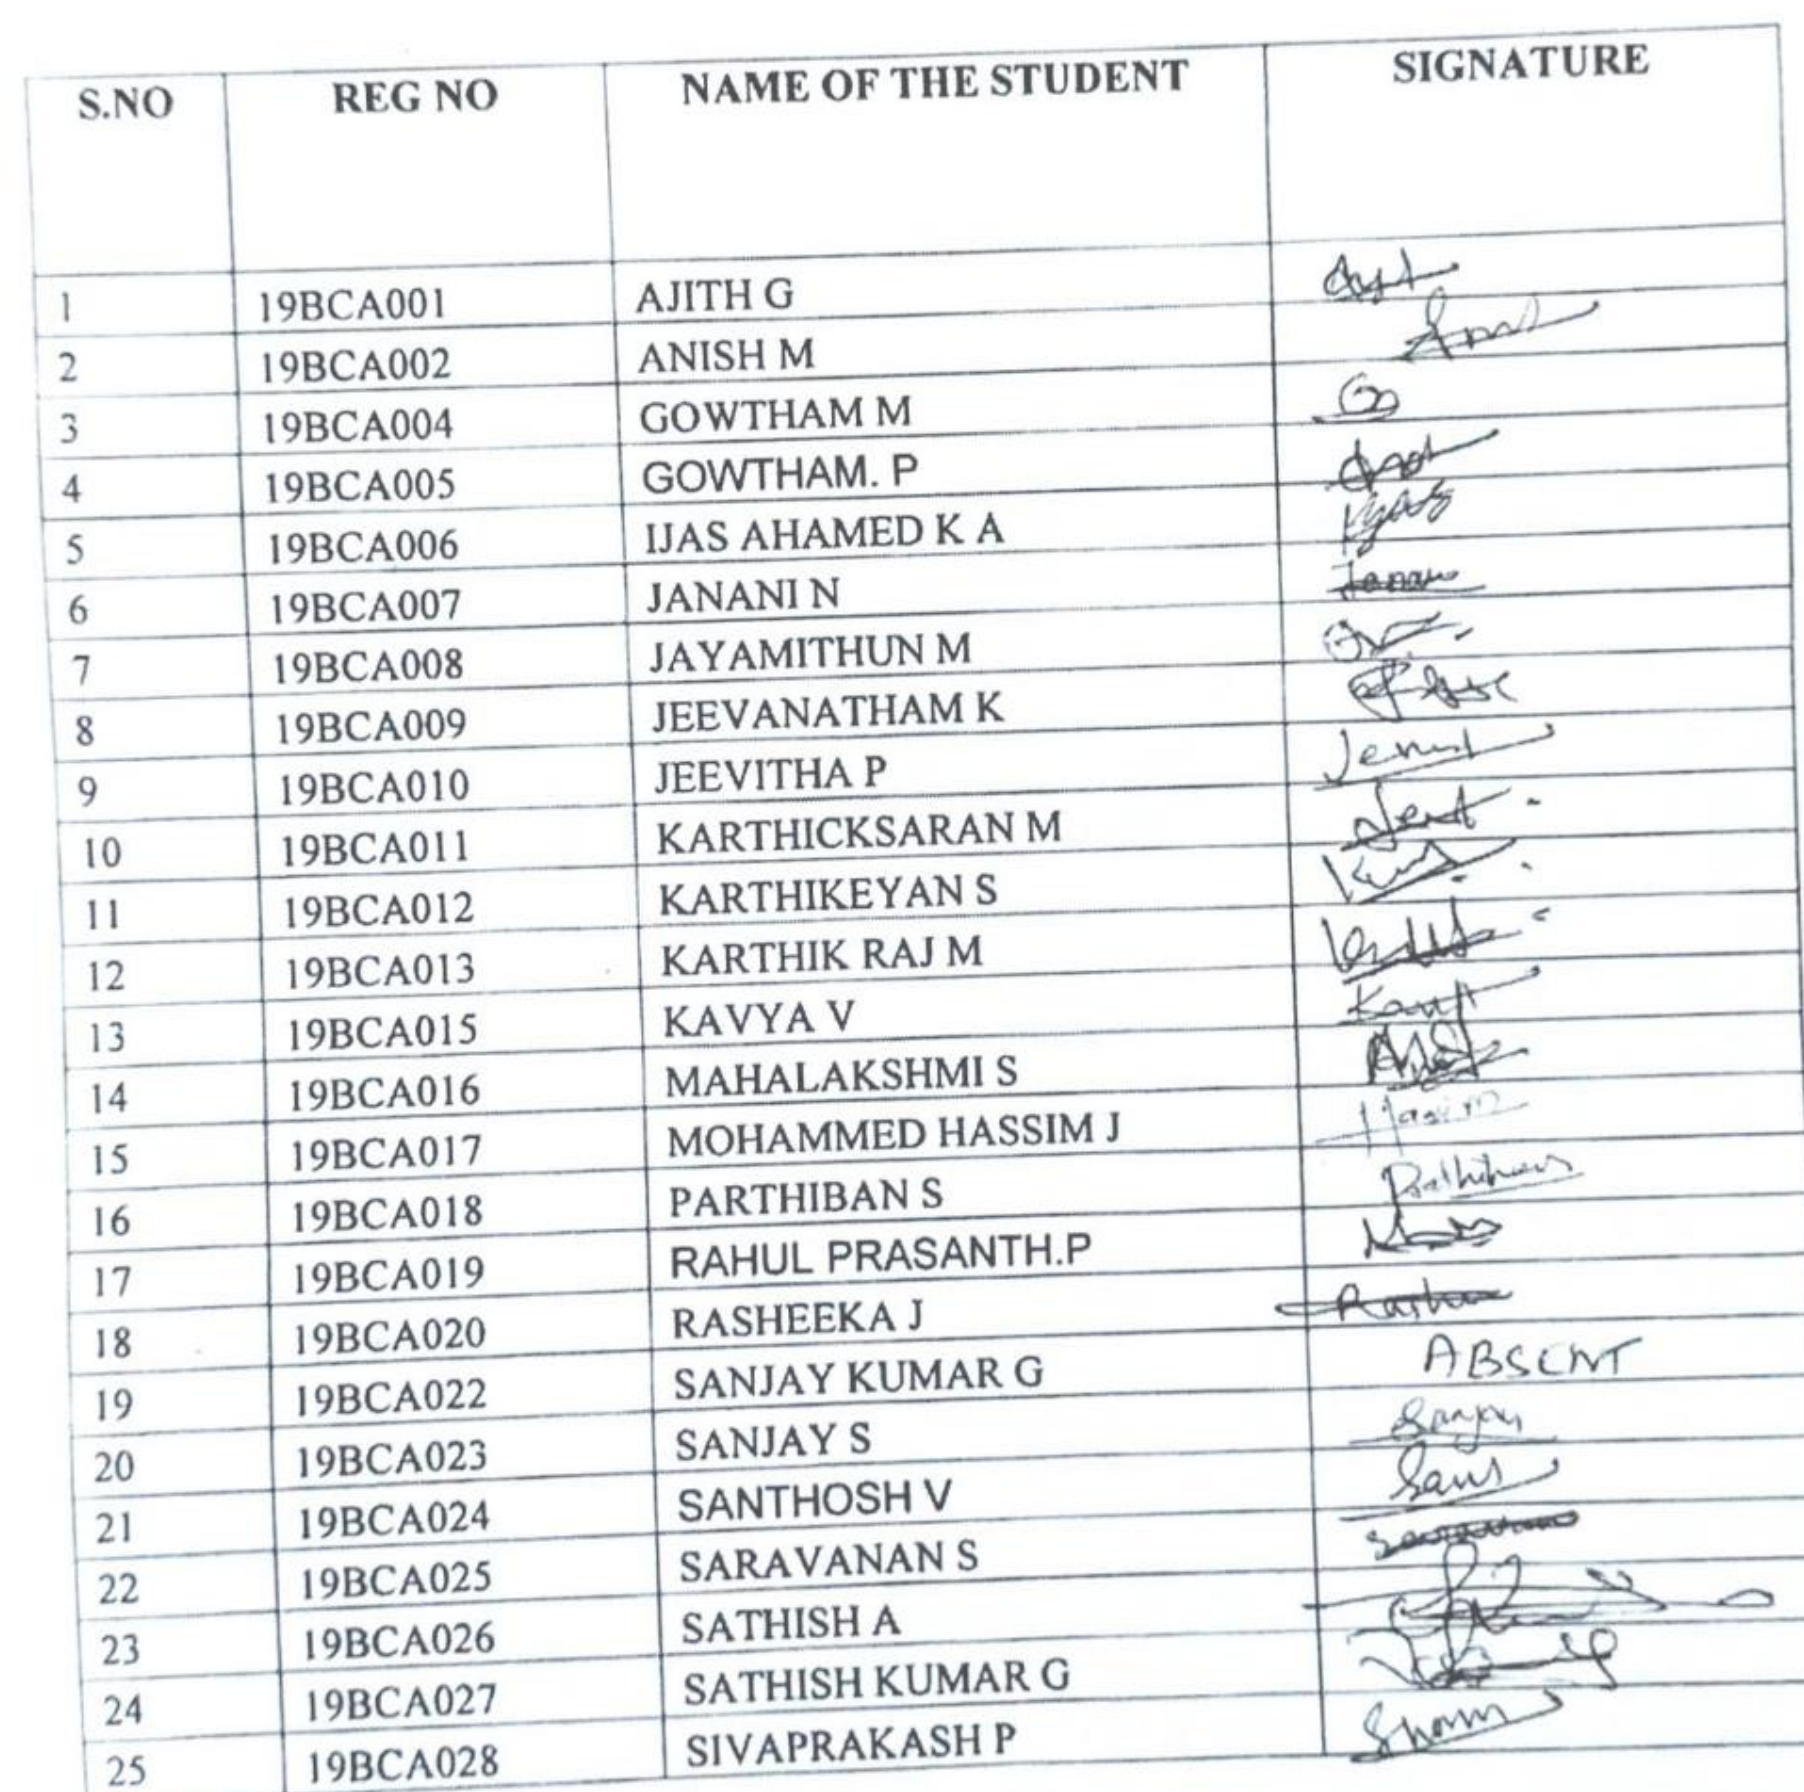 S.NO REG NO NAME OF THE STUDENT SIGNATURE
1 19BCA001 AJITH G
2 19BCA002 ANISH M
3 19BCA004 GOWTHAM M
4 19BCA005 GOWTHAM. P
5 19BCA006 IJAS AHAMED K A
6 19BCA007 JANANI N
7 19BCA008 JAYAMITHUN M
8 19BCA009 JEEVANATHAM K
9 19BCA010 JEEVITHA P
10 19BCA011 KARTHICKSARAN M
11 19BCA012 KARTHIKEYAN S
12 19BCA013 KARTHIK RAJ M
13 19BCA015 KAVYA V
14 19BCA016 MAHALAKSHMI S
15 19BCA017 MOHAMMED HASSIM J
16 19BCA018 PARTHIBAN S
17 19BCA019 RAHUL PRASANTH.P
18 19BCA020 RASHEEKA J
19 19BCA022 SANJAY KUMAR G ABSENT
20 19BCA023 SANJAY S Sanjay
21 19BCA024 SANTHOSH V
22 19BCA025 SARAVANAN S
23 19BCA026 SATHISH A
24 19BCA027 SATHISH KUMAR G
25 19BCA028 SIVAPRAKASH P